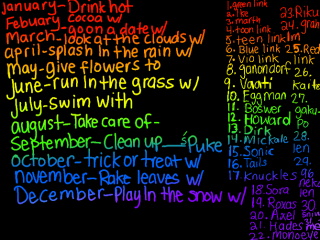 january-Drink hot
cocoa w/
Febuary-go on a date w/
March-look at the clouds w/
april-splash in the rain w/
may-give flowers to
June-run in the grass w/
July-swim with
august-Take care of-
September-Clean up___'s Puke
October-trick or treat w/
november-Rake leaves w/
December-Play In the snow w/
1.green link
2.Ike
3.marth
4.toon link
5.teen link
6.Blue link
7.Vio link
8.ganondorf
9.Vaati
10.Eggman
11.Boswer
12.Howard
13.Dirk
14.Mickale
15.Sonic
16.Tails
17.Knuckles
18.Sora
19.Roxas
20.Axel
21.Hades
22.
23.Riku
24.
25.Red
link
26.
27.
28.
len
29.
30